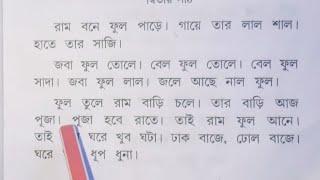 রাম বনে ফুল পাড়ে। গায়ে তার লাল শাল।
হাতে তার সাজি।
জবা ফুল তোলে। বেল ফুল তোলে। বেল ফুল
সাদা। জবা ফুল লাল। জলে আছে নাল ফুল।
ফুল তুলে রাম বাড়ি চলে। তার বাড়ি আজ
পূজা। পূজা হবে রাতে। তাই রাম ফুল আনে।
তাই ঘরে খুব ঘটা। ঢাক বাজে, ঢোল বাজে।
ঘরে ধূপ ধুনা।